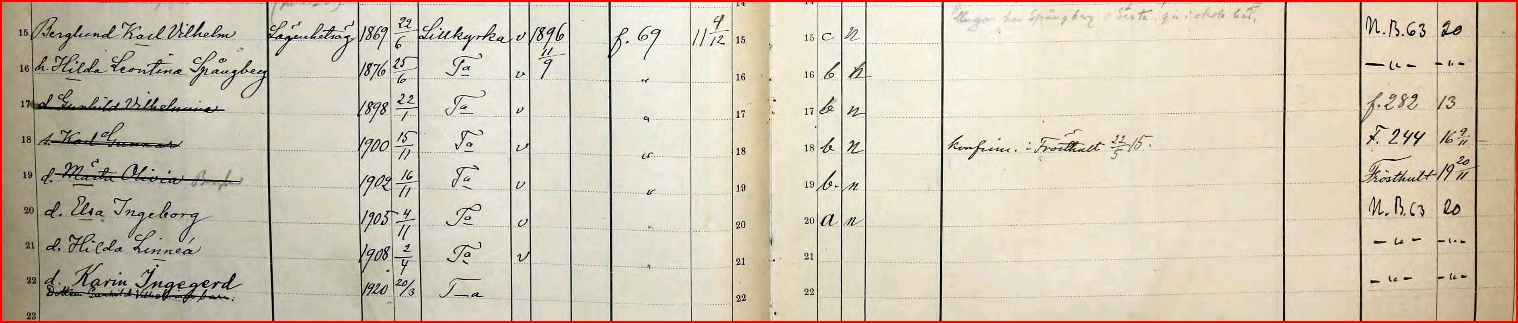 15 Berglund Karl Vilhelm Lägenhetsäg 1869 22/6 Litkyrka v 1896 11/9 f. 69 11 4/12 15 c n N.B.63 20
16 h. Hilda Leontina Spångberg 1876 25/6 Ta v " 16 b n —"— —"—
17 d. Gunhild Vilhelmina 1898 22/1 Ta v " 17 b n f. 282 13
18 s. Karl Gunnar 1900 15/11 Ta v " 18 b n konfirm. i Frösthult 22/5 15. F. 244 16 9/11
19 d. Märta Olivia 1902 16/11 Ta v " 19 b. n Frösthult 19 20/11
20 d. Elsa Ingeborg 1905 4/11 Ta v 20 a n N.B.63 20
21 d. Hilda Linnéa 1908 2/4 Ta v " 21 —"— —"—
22 d. Karin Ingegerd 1920 20/3 T—a 22 —"— —"—
23